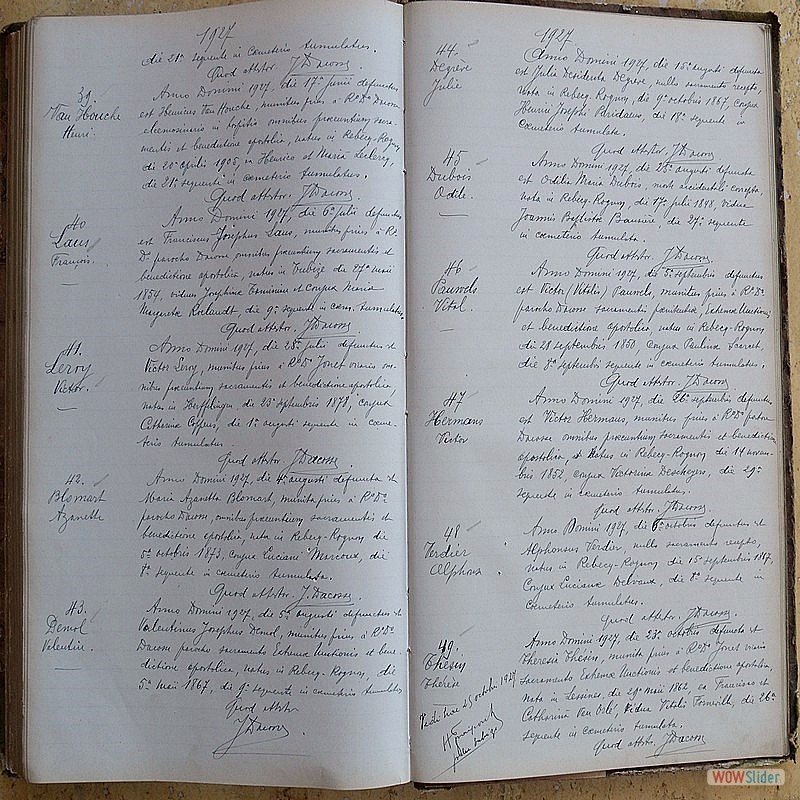 1927
die 21ª sequente in cæmeterio tumulatus.
Quod attstor. J Dacosse
39.
Van Houche
Henri.
Anno Domini 1927, die 17ª junii defunctus
est Henricus Van Houche, munitus prius a R° D° Dacosse
eleemosinario in hospitio omnibus præcuntium sacra-
mentis et benedictione apostolica, natus in Rebecq-Rognon,
die 20ª aprilis 1905, ex Henrico et Maria Leclercq,
die 21ª sequenti in cæmeterio tumulatus.
Quod attstor. J Dacosse
40
Laus
François.
Anno Domini 1927, die 6ª julii defunctus
est Franciscus Josephus Laus, munitus prius a R°
D° parocho Dacosse omnibus præcuntium sacramentis et
benedictione apostolica, natus in Tubize die 27ª maii
1854, viduus Josephina et conjux Maria
Margareta Roelandt, die 9ª sequenti in cæm. tumulatus
Quod attstor. J Dacosse
41.
Leroy
Victor.
Anno Domini 1927, die 28ª julii defunctus est
Victor Leroy, munitus prius a R° D° Jonet vicario om-
nibus præcuntium sacramentis et benedictione apostolica,
natus in Herffelingen, die 23ª septembris 1878, conjux
Catherina, die 1ª augusti sequente in cæme-
terio tumulatus.
Quod attstor J Dacosse
42.
Blomart
Azanette
Anno Domini 1927, die 4ª augusti defuncta est
Maria Azanetta Blomart, munita prius a R° D°
parocho Dacosse, omnibus præcuntium sacramentis et
benedictione apostolica, nata in Rebecq-Rognon die
5ª octobris 1873, conjux Luciani Marcoux, die
7ª sequente in cæmeterio tumulata.
Quod attstor. J. Dacosse
43.
Demol
Valentin.
Anno Domini 1927, die 5ª augusti defunctus est
Valentinus Josephus Demol, munitus prius a R° D°
Dacosse parocho sacramento Extremæ Unctionis et bene-
dictione apostolica, natus in Rebecq-Rognon, die
5ª maii 1867, die 9ª sequente in cæmeterio tumulatus
Quod attstor
J Dacosse
1927
44.
Degrève
Julie
Anno Domini 1927, die 15ª augusti defuncta
est Julia Desiderata Degrève, nullo sacramento recepto,
nata in Rebecq-Rognon, die 9ª octobris 1867, conjux
Henrici Josephi Paridaens, die 18ª sequente in
cæmeterio tumulata.
Quod attstor. J Dacosse
45
Dubois
Odile.
Anno Domini 1927, die 25ª augusti defuncta
est Odilia Maria Dubois, morte accidentali correpta,
nata in Rebecq-Rognon, die 17ª julii 1848, vidua
Joannis Baptistæ, die 27ª sequente
in cæmeterio tumulata.
Quod attstor. J Dacosse
46
Pauwels
Vital.
Anno Domini 1927, die 5ª septembris defunctus
est Victor (Vitalis) Pauwels, munitus prius a R° D°
parocho Dacosse sacramentis pænitentiæ, Extremæ Unctionis
et benedictione apostolica, natus in Rebecq-Rognon,
die 28 septembris 1850, conjux Paulinæ,
die septembris sequente in cæmeterio tumulatus.
Quod attstor. J Dacosse
47
Hermans
Victor
Anno Domini 1927, die 26ª septembris defunctus
est Victor Hermans, munitus prius a R° D° parocho
Dacosse omnibus præcuntium sacramentis et benedictione
apostolica, natus in Rebecq-Rognon die 11 novem-
bris 1852, conjux Victorina Deschepers, die 29ª
sequente in cæmeterio tumulatus.
Quod attstor. J Dacosse
48
Verdier
Alphonse.
Anno Domini 1927, die 6ª octobris defunctus est
Alphonsus Verdier, nullo sacramento recepto,
natus in Rebecq-Rognon, die 15 septembris,
conjux Lucianæ Delvaux, die 8ª sequente in
cæmeterio tumulatus.
Quod attstor. J Dacosse.
49.
Thésin
Thérèse
Visite hac 25 octobris 1927
Anno Domini 1927, die 23ª octobris defuncta est
Theresia Thésin, munita prius a R° D° Jonet vicario
sacramento Extremæ Unctionis et benedictione apostolica,
nata in Lessines, die 29ª maii 1862, ex Francisco et
Catharina Van, vidua Vitalis, die 26ª
sequente in cæmeterio tumulata.
Quod attstor. J Dacosse
WOWSlider